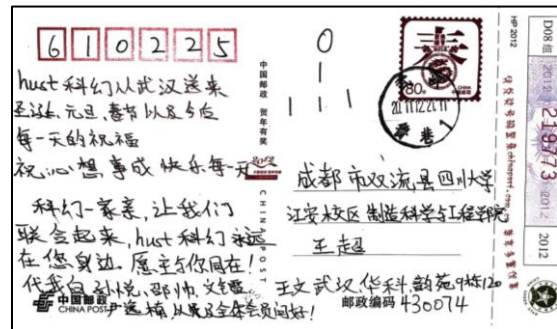 610225
hust科幻从武汉送来
圣诞、元旦、春节以及今后
每一天的祝福
祝心想事成 快乐每一天
科幻一家亲,让我们
联合起来,hust科幻永远
在您身边.愿主与你同在!
代我向孙悦、邵帅、
以及全体会员问好!
中国邮政
CHINA POST
中国邮政 贺年有奖
2012
CHINA POST
0
1
1 1 1
80分
成都市双流县四川大学
江安校区 制造科学与工程学院
王超
王文 武汉 华科 韵苑9栋120
邮政编码 430074
HP 2012
D08组
2012
219773
2012